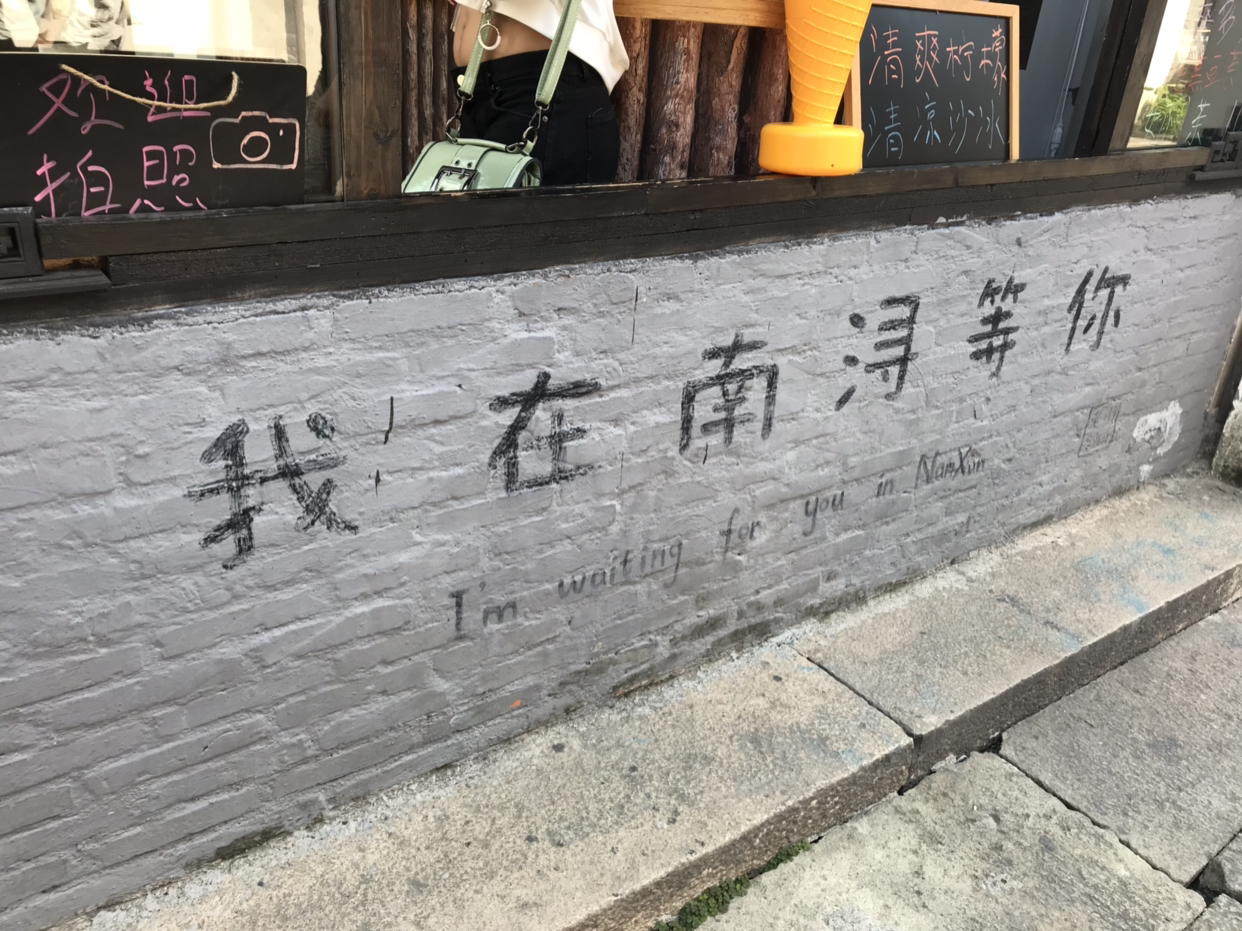 欢迎
拍照
清爽柠檬
清凉沙冰
我在南浔等你
I'm waiting for you in NanXun